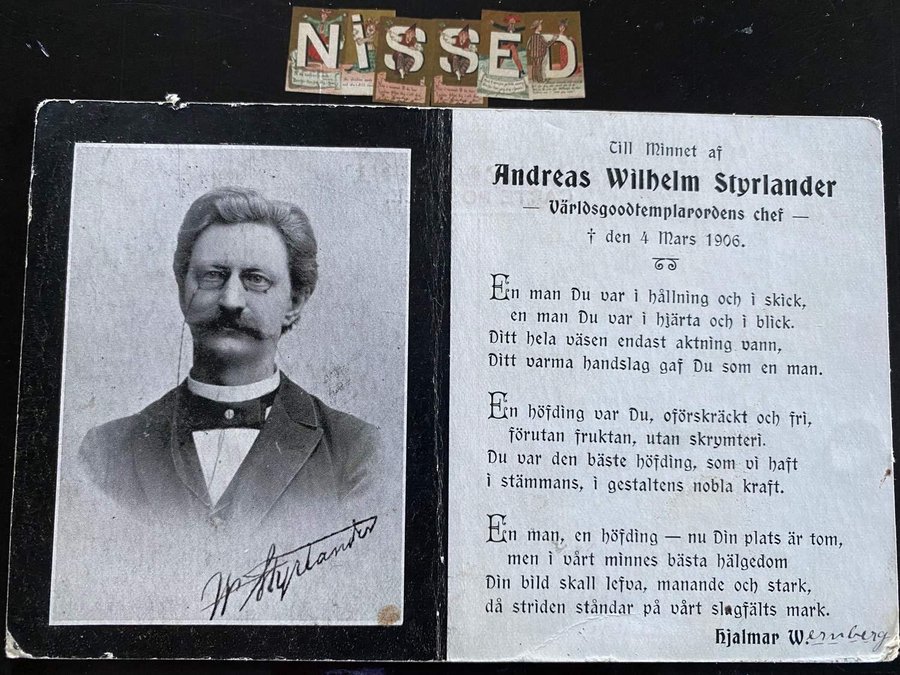 NiSSED
Till Minnet af
Andreas Wilhelm Styrlander
— Världsgoodtemplarordens chef —
† den 4 Mars 1906.
En man Du var i hållning och i skick,
en man Du var i hjärta och i blick.
Ditt hela väsen endast aktning vann,
Ditt varma handslag gaf Du som en man.
En höfding var Du, oförskräckt och fri,
förutan fruktan, utan skrymteri.
Du var den bäste höfding, som vi haft
i stämmans, i gestaltens nobla kraft.
En man, en höfding — nu Din plats är tom,
men i vårt minnes bästa hälgedom
Din bild skall lefva, manande och stark,
då striden ståndar på vårt slagfälts mark.
Hjalmar W.ernberg
Styrlander